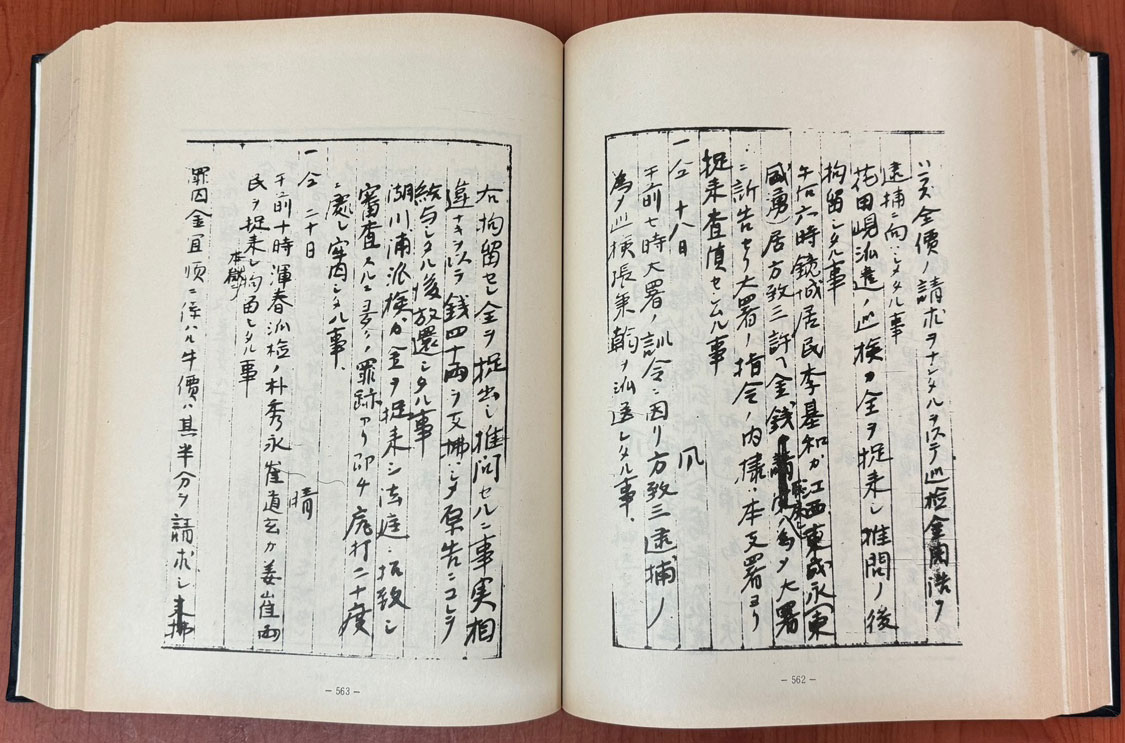 ハズ全價ノ請求ヲナシタルヲ以テ巡检金開浩ヲ
逮捕ニ向ハシタル事
花田峴派遣ノ巡検カ全ヲ捉来シ推問ノ後
拘留シタル事
午后六時鏡城居民李基和カ江西東咸永(東
咸勇)居方致三許ヘ金銭ノ為メ大署
ニ訴告セリ大署ノ指令ノ内據本支署ヨリ
捉来査償セシムル事
一仝 十八日 風
午前七時大署ノ訓令ニ因リ方致三逮捕ノ
為メ巡検張秉翰ヲ派送シタル事、
- 562 -
右拘留セシ全ヲ捉出シ推问セルニ事実相
違ナキヲ以テ銭四十両ヲ支拂シタ原告ニコレヲ
給与シタル後放還シタル事
湖川浦派検カ金ヲ捉来シ法庭ニ拘致シ
審査スルニ罪跡アリ即チ笞打二十度
ニ處シ牢囚シタル事、
一仝 二十日 晴
午前十時渾春派检ノ朴秀永崔道玄カ姜崔両
民ヲ捉来シ拘留シタル事
罪囚金宜順ニ係ハル牛價ハ其半分ヲ請求シ来拂
- 563 -